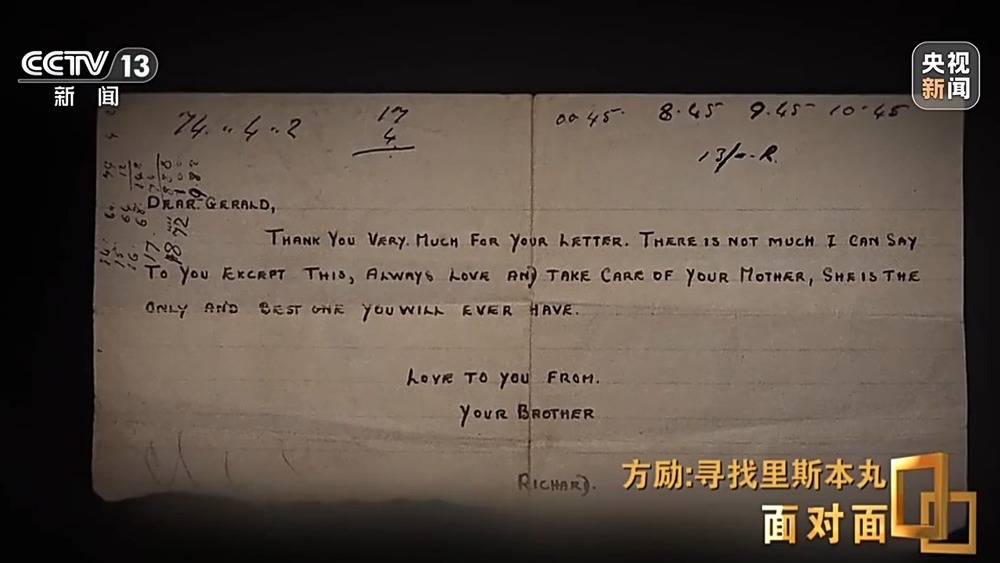 CCTV 13
新闻
央视
新闻
74 " 4 " 2
17
4
00 45 8.45 9.45 10.45
DEAR. GERALD,
THANK YOU VERY. MUCH FOR YOUR LETTER. THERE IS NOT MUCH I CAN SAY
TO YOU EXCEPT THIS, ALWAYS LOVE AND TAKE CARE OF YOUR MOTHER, SHE IS THE
ONLY AND BEST ONE YOU WILL EVER HAVE.
LOVE TO YOU FROM.
YOUR BROTHER
RICHARD.
方励:寻找里斯本丸
面对面